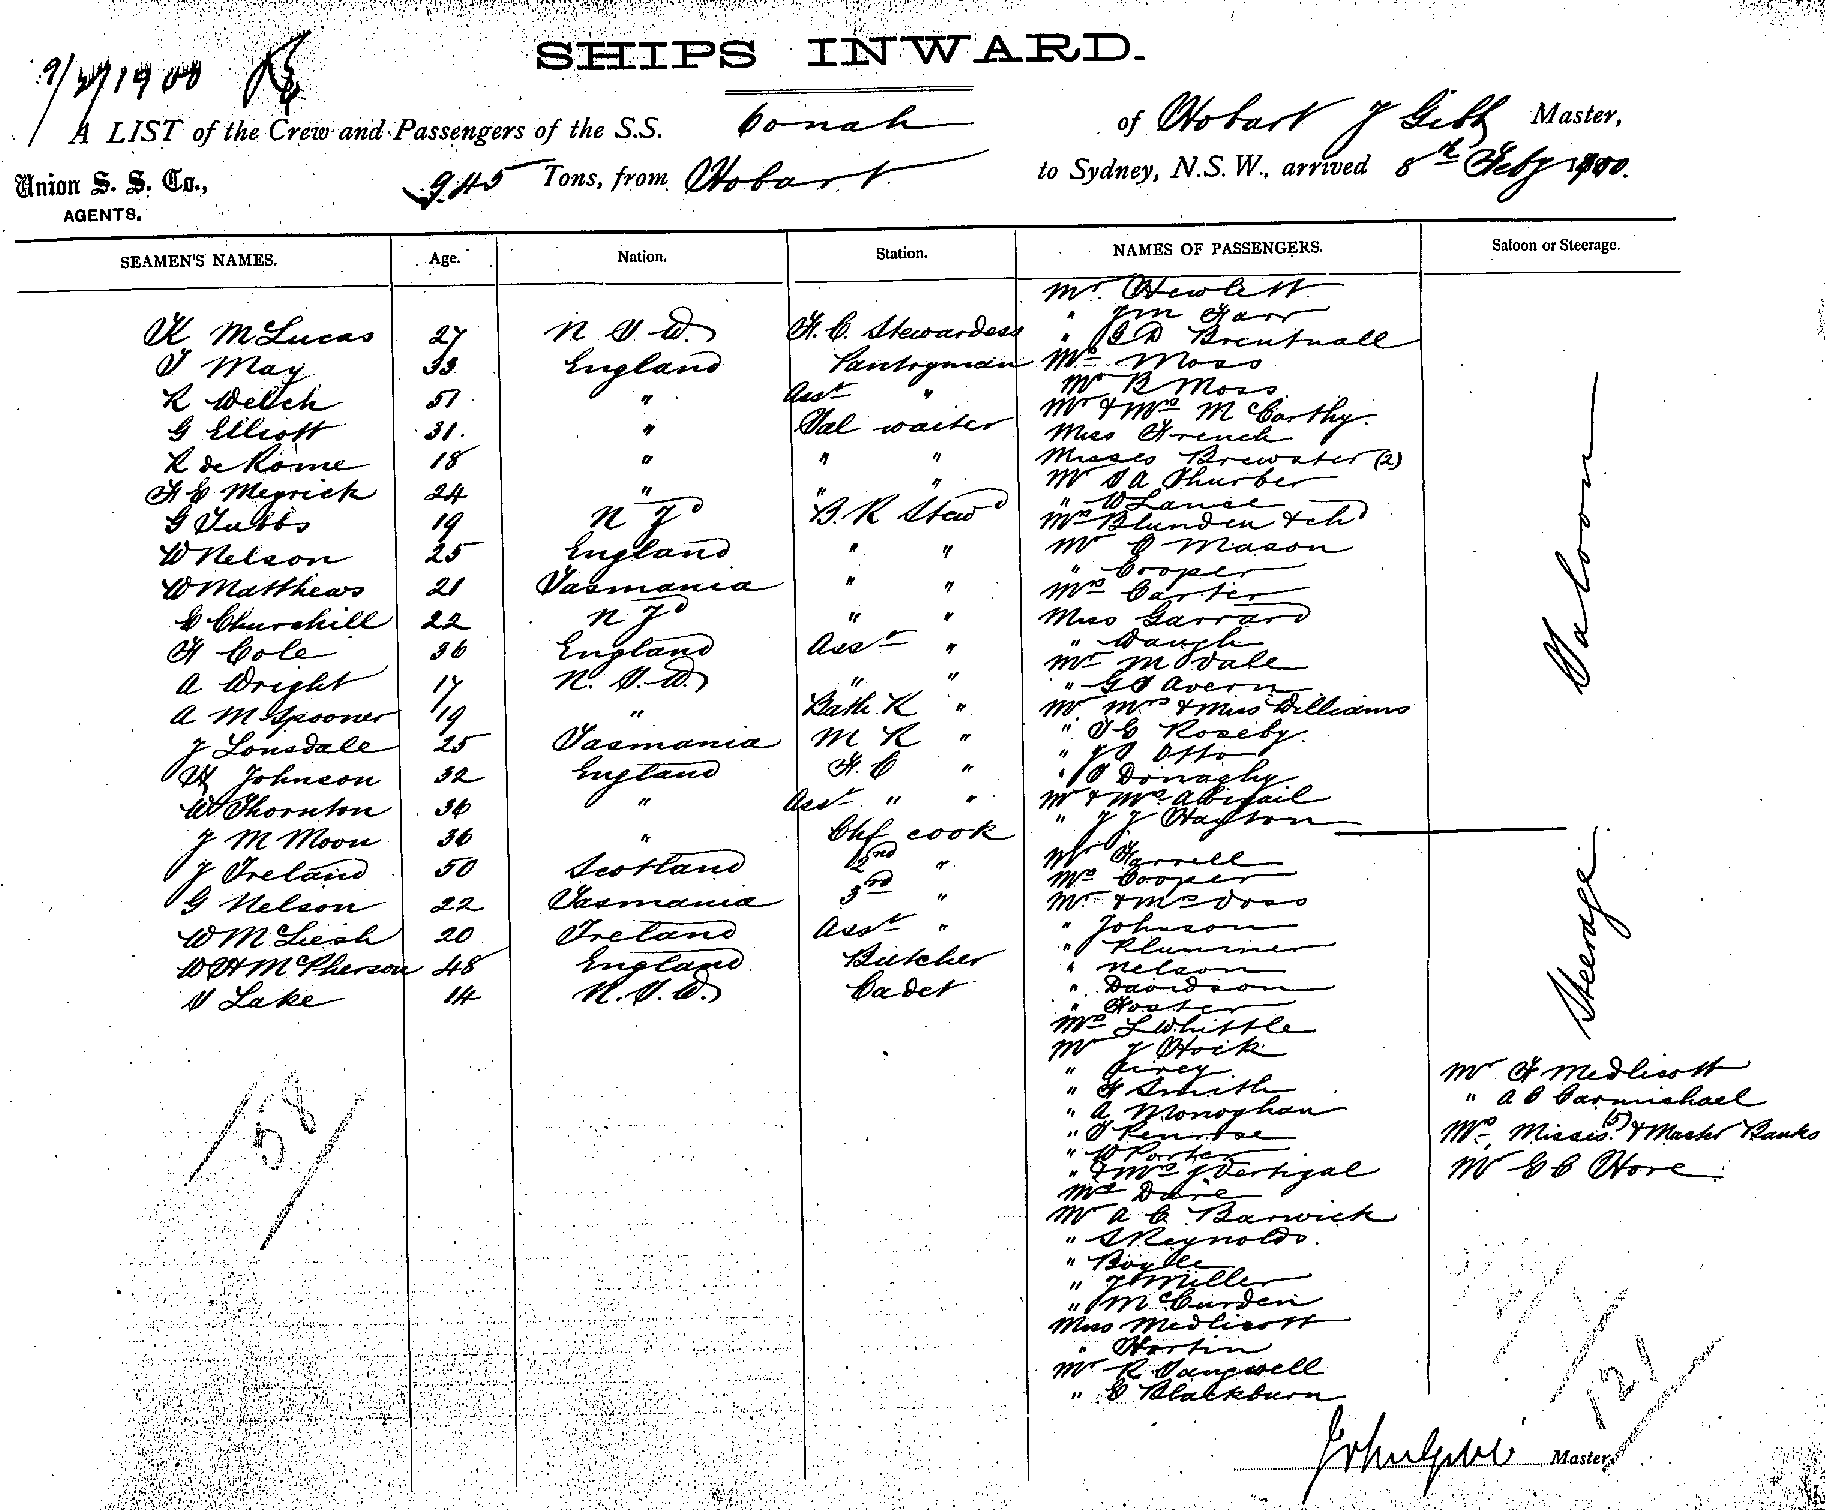 SHIPS INWARD.
9/2/1900
A LIST of the Crew and Passengers of the S.S. Oonah of Hobart J Gibb Master,
Union S. S. Co., AGENTS.
945 Tons, from Hobart to Sydney, N.S.W., arrived 8th Feby 1900.
SEAMEN'S NAMES. Age. Nation. Station.
K McLucas 27 N S W. F. C. Stewardess
T May 33 England Pantryman
R Welch 51 " Asst "
G Elliott 31. " Sal waiter
R de Rome 18 " " "
F C Meyrick 24 " " "
G Tubbs 19 N Zd B. R Stewd
W Nelson 25 England " "
W Matthews 21 Tasmania " "
C Churchill 22 N Zd " "
F Cole 36 England Asst "
A Wright 17 N. S. W. " "
A M Spooner 19 " Bath R "
J Lonsdale 25 Tasmania M R "
H Johnson 32 England F. C "
W Thornton 36 " Asst " "
J M Moon 36 " Chf cook
J Ireland 50 Scotland 2nd "
G Nelson 22 Tasmania 3rd "
W McLiesh 20 Ireland Asst "
W H McPherson 48 England Butcher
V Lake 14 N. S. W. Cadet
58
NAMES OF PASSENGERS. Saloon or Steerage.
Mr. Hewlett
" Jm Farr
" G D Brentnall
Mrs Moss
Mr B Moss
Mr & Mrs McCarthy.
Miss French
Misses Brewster (2)
Mr S A Thurber
" W Lance
Mrs Blunden & chd
Mr C Mason
" Cooper
Mrs Carter
Miss Garrard
" Waugh
Mr M Vale
" G S Avern
Mr Mrs & Miss Williams
" T G Roseby.
" J S Otto
" S Donaghy
Mr & Mrs Abigail
" J J Hayton
Saloon
Mr Farrell
Mrs Cooper
Mr & Mrs Voss
" Johnson
" Plummer
" Nelson
" Davidson
" Foster
Mrs L Whittle
Mr J Hock
" Airey
" F Smith
" A Monoghan
" S Penrose
" W Porter
" & Mrs J Vertigal
Mrs Dare
Mr A C Barwick
" S Reynolds.
" Boyle
" J Miller
" McCurden
Miss Medlicott
" Hortin
Mr R Sangwell
" C Blackburn
Steerage
Mr F Medlicott
" A C Carmichael
Mrs, Misses (5) & Master Banks
Mr G C Hore
121
John Gibb Master,